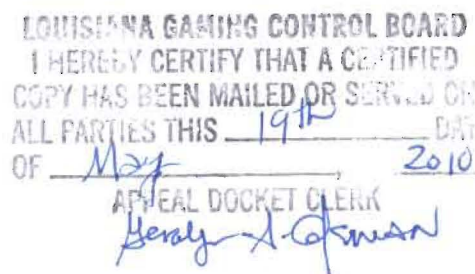 LOUISIANA GAMING CONTROL BOARD
I HEREBY CERTIFY THAT A CERTIFIED
COPY HAS BEEN MAILED OR SERVED ON
ALL PARTIES THIS 19th DAY
OF May, 2010
APPEAL DOCKET CLERK